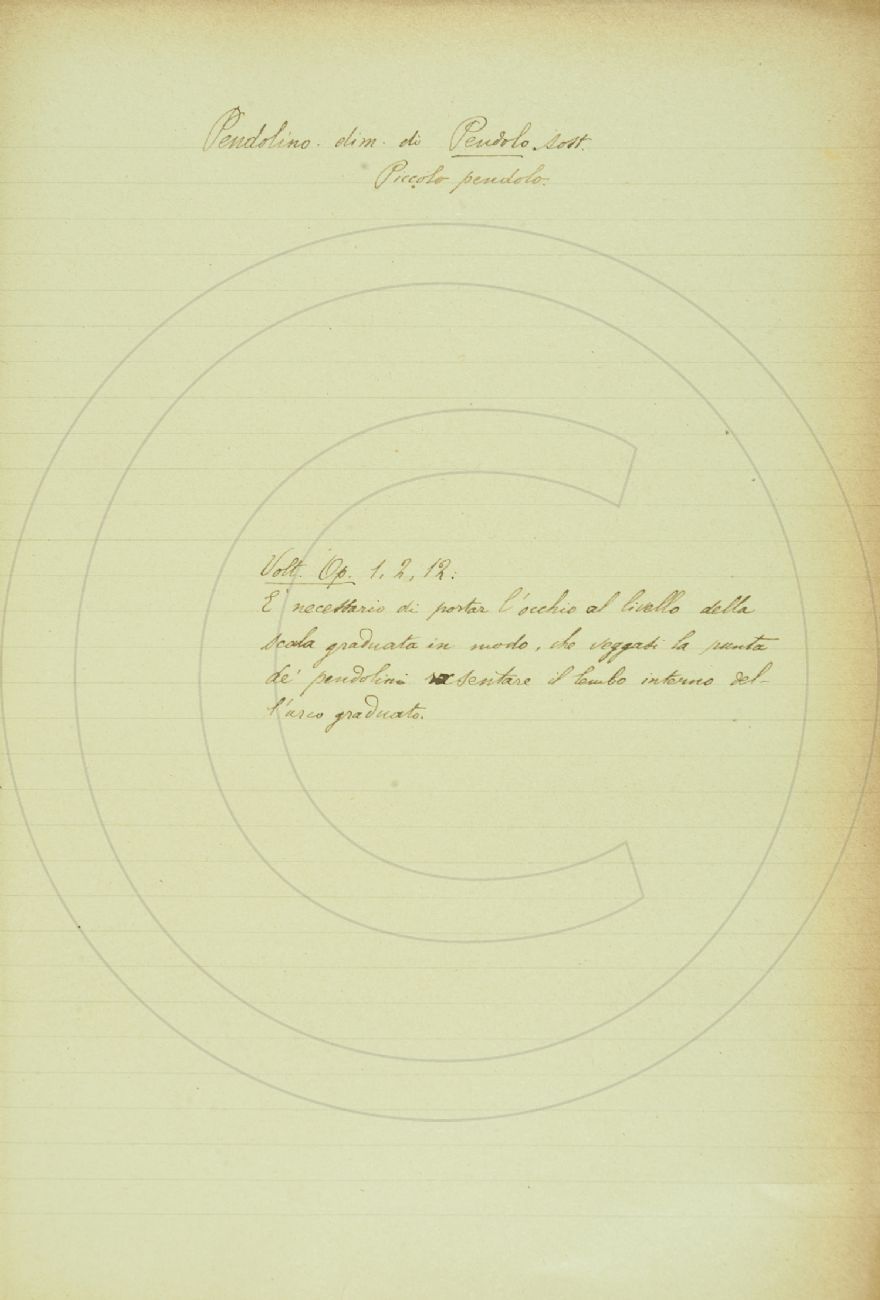 Pendolino. dim. di Pendolo. sost.
Piccolo pendolo.
Volt. Op. 1, 2, 12:
E' necessario di portar l'occhio al livello della
scala graduata in modo, che veggasi la punta
de' pendolini rasentare il lembo interno del-
l'arco graduato.